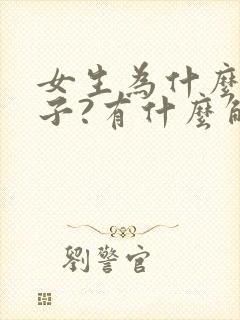 女生為什麼
子?有什麼
劉警官